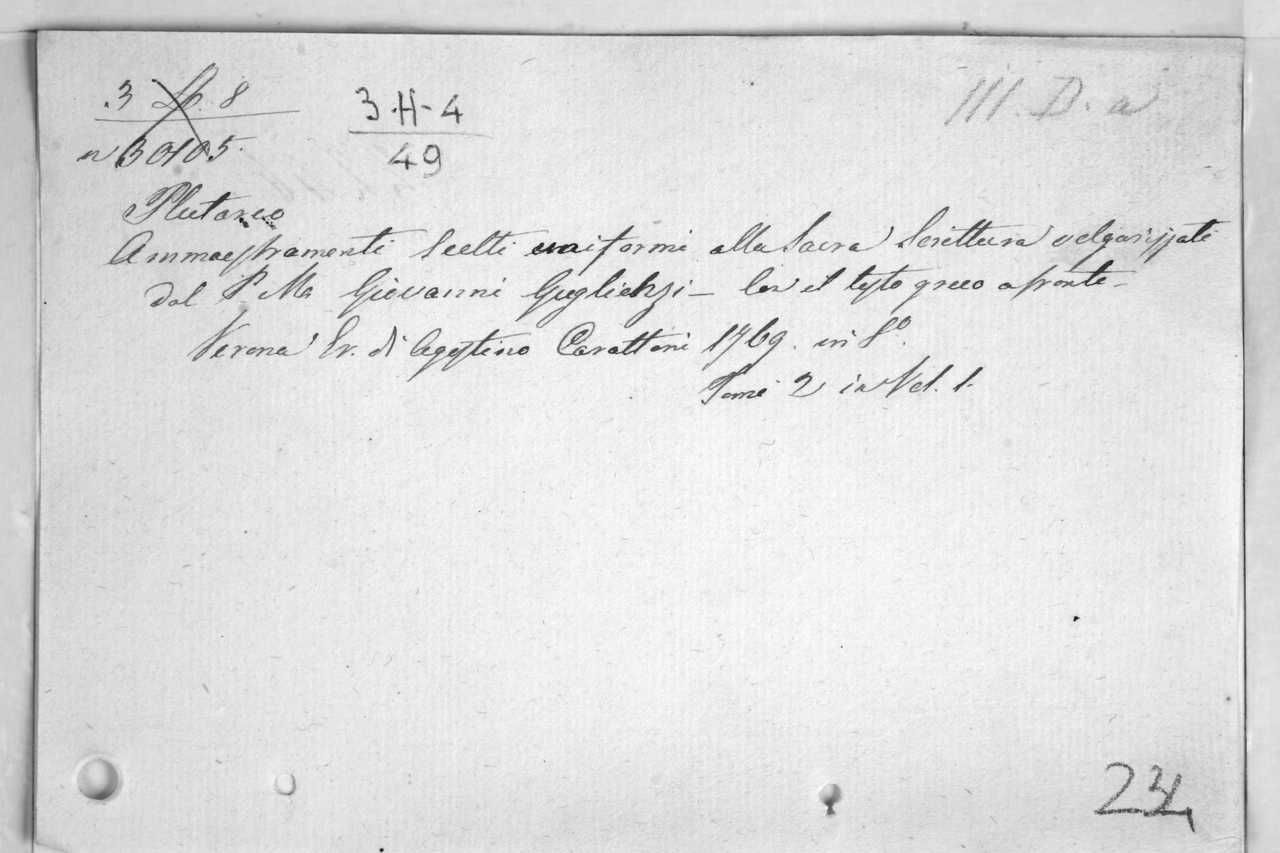 3 Lp. 8
n 30105.
3-H-4
49
III. D. a
Plutarco
Ammaestramenti Scelti uniformi alla Sacra Scrittura volgarizzati
dal P. Mo Giovanni Guglienzi - Con il testo greco a fronte -
Verona Er. di Agostino Carattoni 1769. in 8º.
Tomi 2 in Vol. 1.